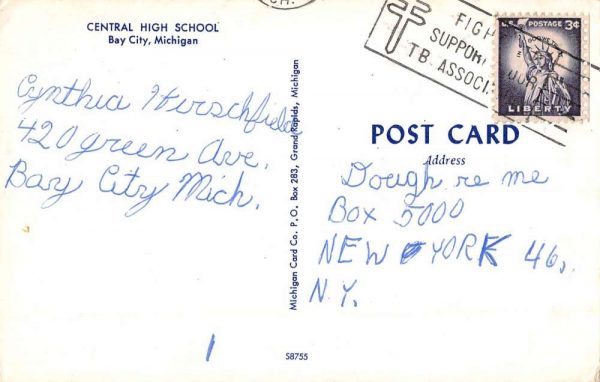 CH.
CENTRAL HIGH SCHOOL
Bay City, Michigan
Cynthia Hirschfield
420 green Ave.
Bay City Mich.
1
Michigan Card Co. P.O. Box 283, Grand Rapids, Michigan
S8755
FIGH
SUPPOR
TB ASSOCI
U.S. POSTAGE 3¢
LIBERTY
POST CARD
Address
Dough re me
Box 5000
NEW YORK 46,
N.Y.